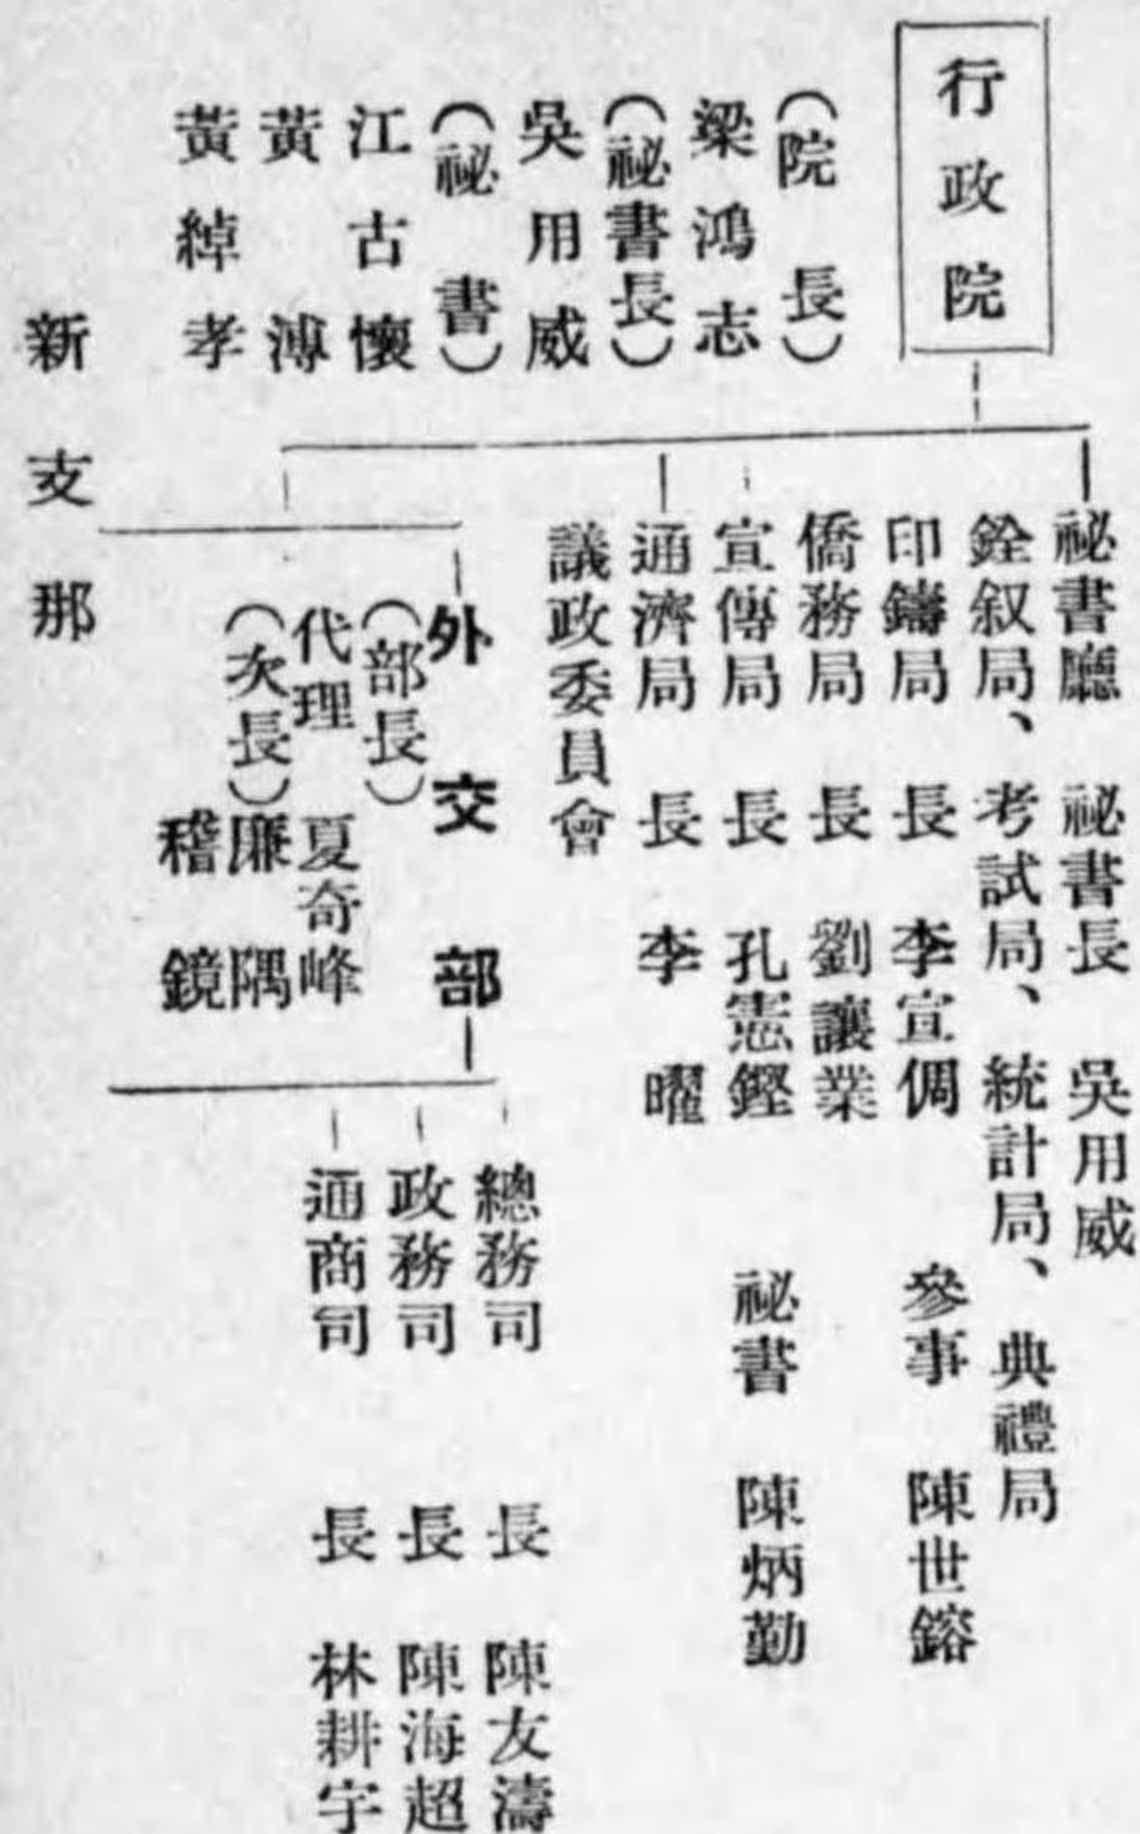 行政院
(院長)
梁鴻志
(祕書長)
吳用威
(祕書)
江古懷
黃溥
黃綽孝
祕書廳 祕書長 吳用威
銓叙局、考試局、統計局、典禮局
印鑄局 長 李宣倜 參事 陳世鎔
僑務局 長 劉讓業
宣傳局 長 孔憲鏗 祕書 陳炳勤
通濟局 長 李曜
議政委員會
外交部
(部長)
代理 夏奇峰
(次長)廉隅
稽鏡
總務司 長 陳友濤
政務司 長 陳海超
通商司 長 林耕宇
新支那